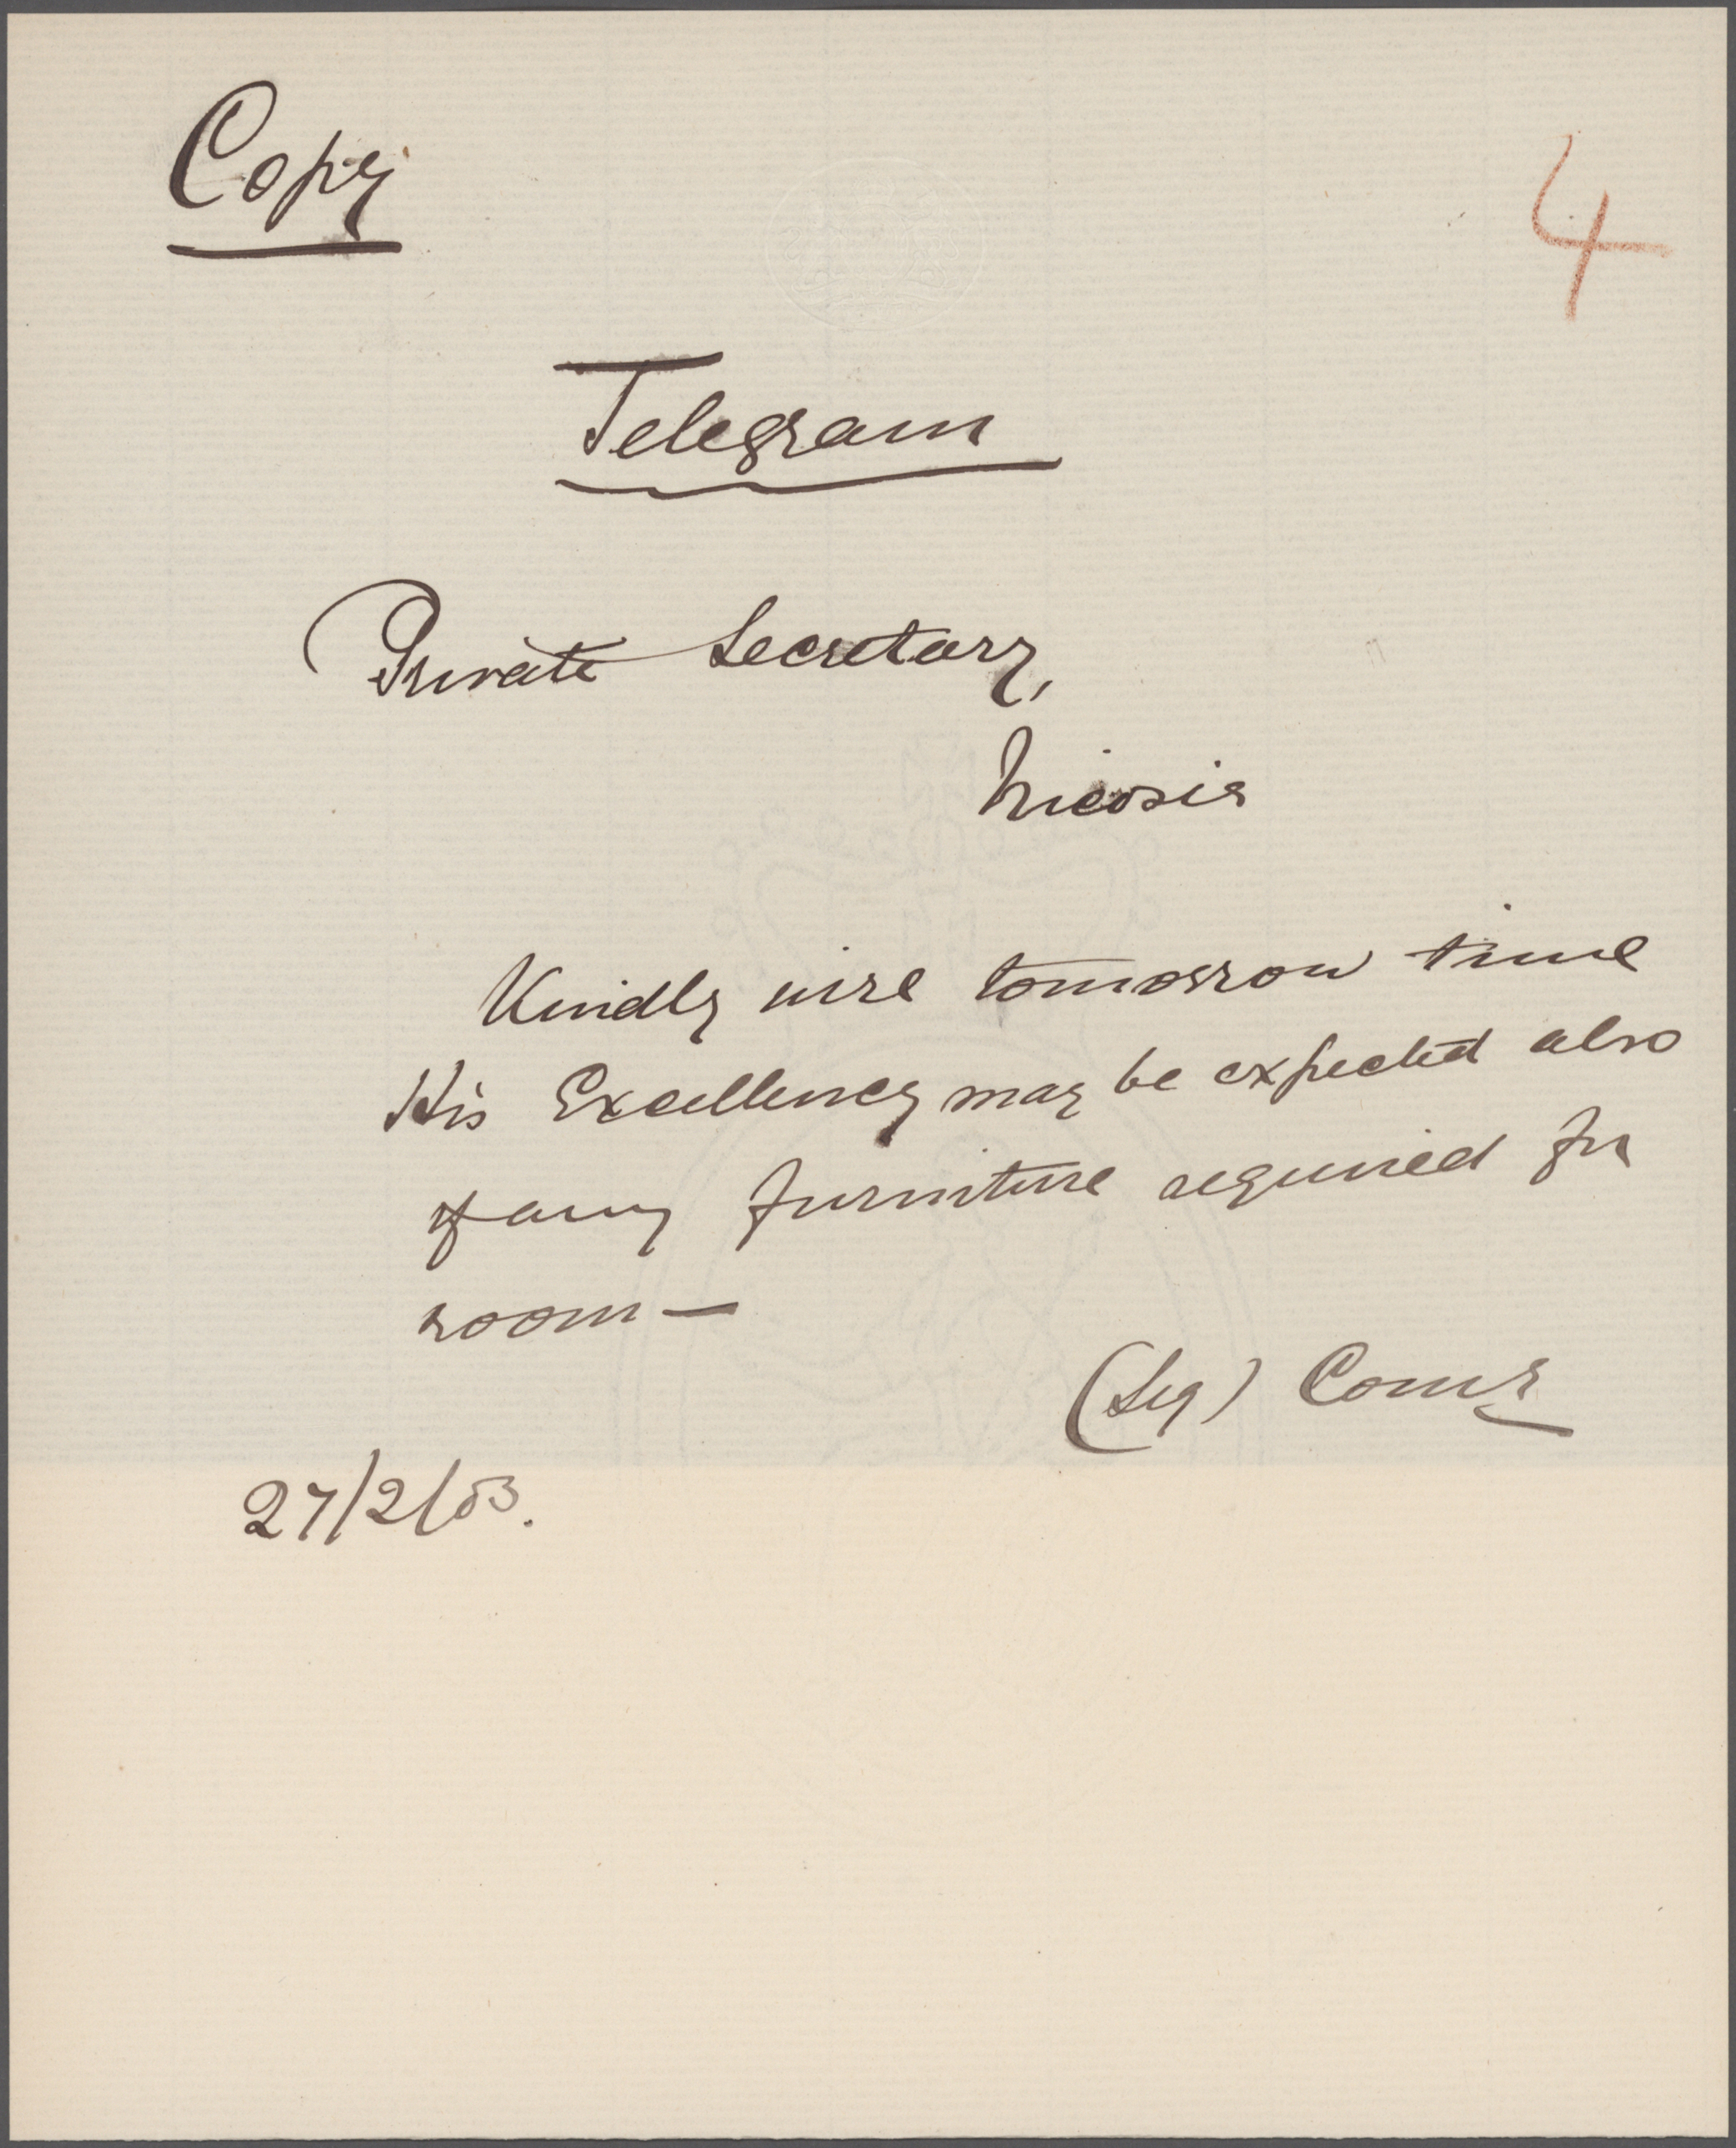 Copy
4
Telegram
Private Secretary,
Nicosia
Kindly wire tomorrow time
His Excellency may be expected also
if any furniture required for
room —
(Sig) Comr
27/2/03.